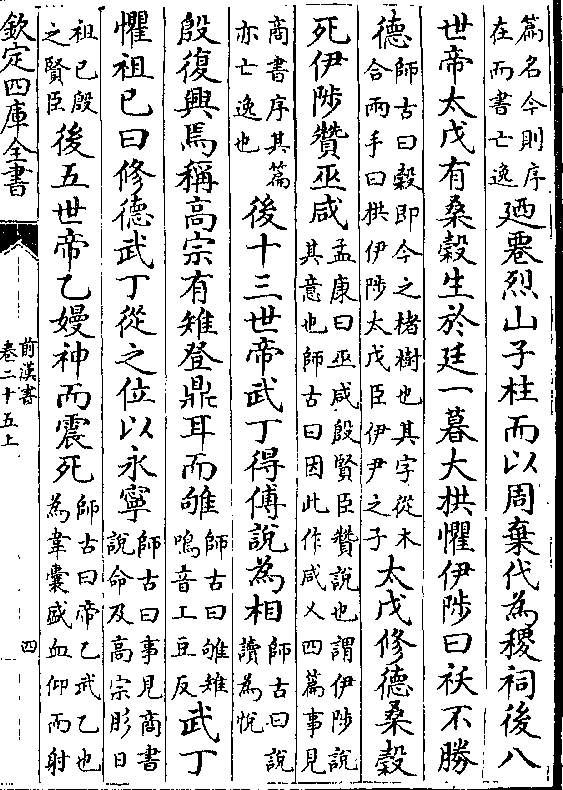 篇名今則序在而書亡逸廼遷烈山子柱而以周棄代為稷祠後八
世帝太戊有桑榖生於廷一暮大拱懼伊陟曰祅不勝
德師古曰榖即今之楮樹也其字從木合兩手曰拱伊陟太戊臣伊尹之子太戊修德桑榖
死伊陟贊巫咸孟康曰巫咸殷賢臣贊說也謂伊陟說其意也師古曰因此作咸乂四篇事見
商書序其篇亦亡逸也後十三世帝武丁得傅說為相師古曰說讀為悅
殷復興焉稱高宗有雉登鼎耳而雊師古曰雊雉鳴音工豆反武丁
懼祖已曰修德武丁從之位以永寧師古曰事見商書說命及高宗肜日
祖已殷之賢臣後五世帝乙嫚神而震死師古曰帝乙武乙也為韋囊盛血仰而射
欽定四庫全書
前漢書
卷二十五上
四